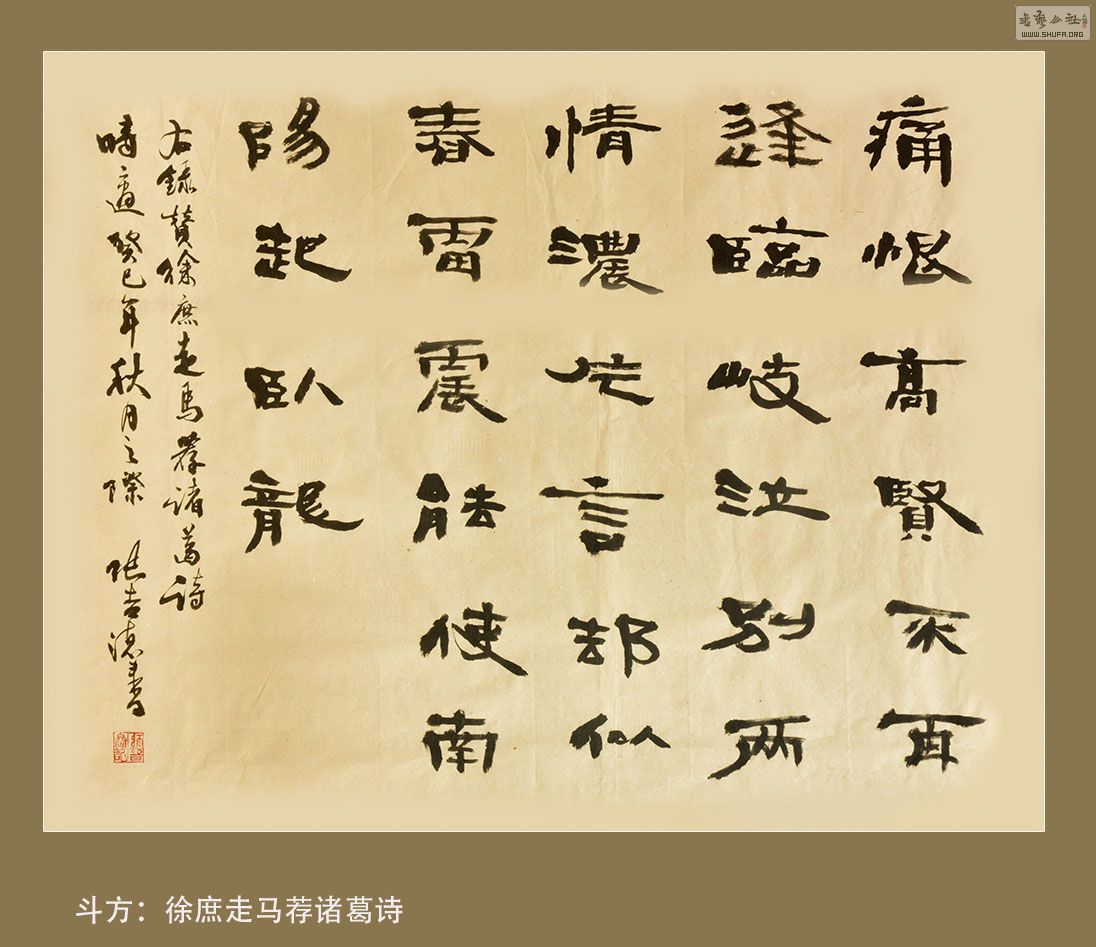 書藝公社
WWW.SHUFA.ORG
痛恨高賢不再
逢臨岐泣別两
情濃片言却似
春雷震能使南
陽起臥龍
右録賛徐庶走馬荐诸葛诗
時適癸巳年秋月之際 张吉德書
斗方：徐庶走马荐诸葛诗